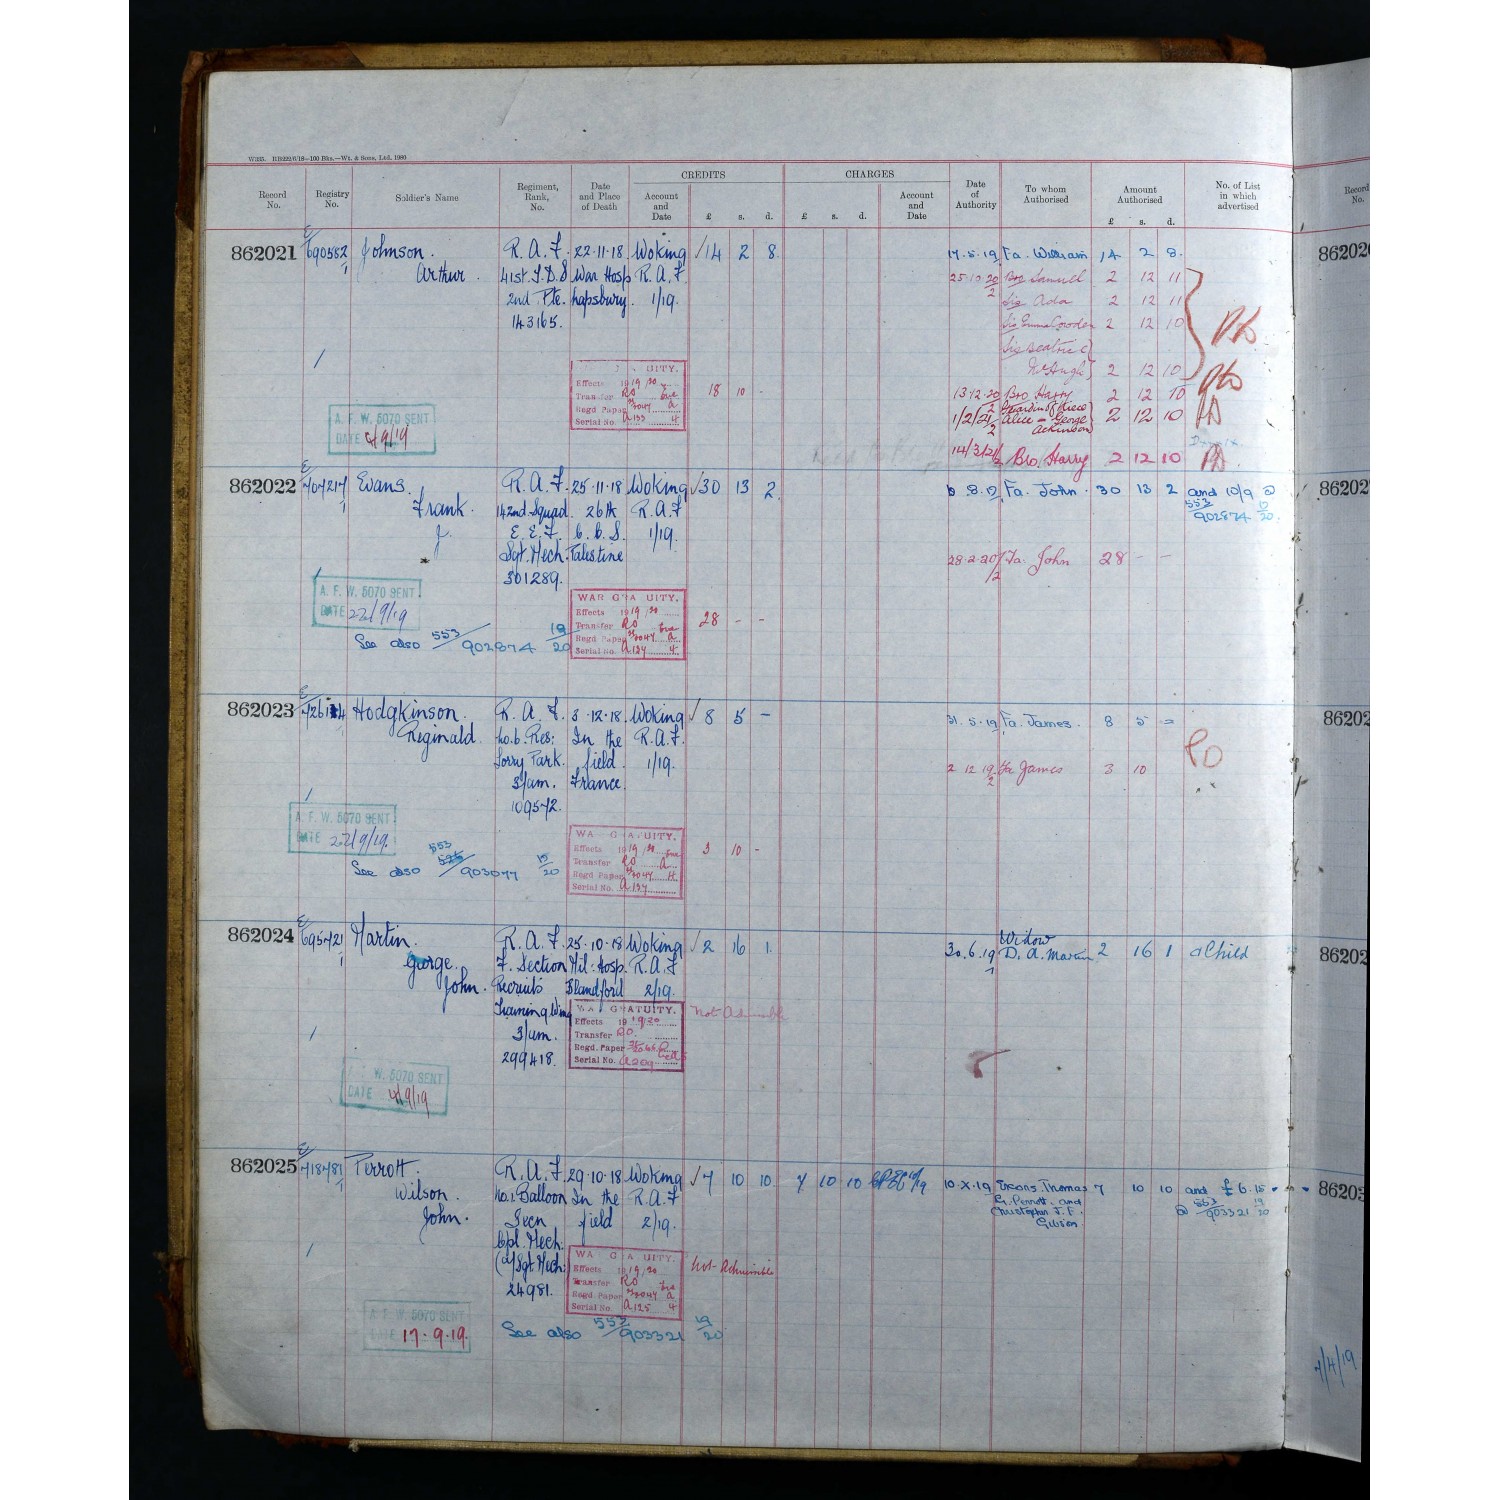 CREDITS CHARGES
Record No. Registry No. Soldier's Name Regiment, Rank, No. Date and Place of Death Account and Date £ s. d. £ s. d. Account and Date Date of Authority To whom Authorised Amount Authorised £ s. d. No. of List in which advertised
862021 690582 Johnson. R. A. F. 22.11.18 Woking 14 2 8. 17.5.19 Fa. William 14 2 8.
Arthur. 41st T.D.S War Hosp R.A.F. 25.10.20 Bro Samuel 2 12 11
2nd Pte. Napsbury. 1/19. Sis Ada 2 12 11
143165. Sis Emma Cowden 2 12 10
Sis Beatrice
McHugh 2 12 10
WAR GRATUITY.
Effects 1919/20
Transfer RO
Regd Paper
Serial No. A 133
18 10 -
13.12.20 Bro Harry 2 12 10
1/2/21 Guardian of Niece
Alice - George 2 12 10
Atkinson
A. F. W. 5070 SENT
DATE 4/9/19
14/3/21 Bro. Harry 2 12 10
862022 707217 Evans. R. A. F. 25.11.18 Woking 30 13 2 8.19 Fa. John. 30 13 2 and 10/9 @
Frank 142nd Squad. 26th R.A.F 553/902874 19/20
J. E. E. F. C. C. S. 1/19.
Sgt. Mech. Palestine 28.2.20 Fa. John 28 - -
301289.
A. F. W. 5070 SENT
DATE 22/9/19
WAR GRATUITY.
Effects 1919/20
Transfer RO
Regd Paper
Serial No. A 134
28 - -
See also 553/902874 19/20
862023 726124 Hodgkinson. R. A. F. 3.12.18. Woking 8 5 - 31.5.19 Fa. James. 8 5 -
Reginald. No.6. Res: In the R.A.F.
Lorry Park. field. 1/19. 2 12 19 Fa James 3 10
3/am. France.
109572.
A. F. W. 5070 SENT
DATE 22/9/19.
WAR GRATUITY.
Effects 1919/20
Transfer RO
Regd Paper
Serial No. A 137
3 10 -
See also 553/903077 19/20
862024 695721 Martin. R. A. F. 25.10.18 Woking 2 16 1. 30.6.19 Widow D. A. Martin 2 16 1 Child
George. F. Section Mil: Hosp. R.A.F
John. Recruits Blandford 2/19.
Training Wing
3/am.
299418.
WAR GRATUITY.
Effects 1919/20
Transfer RO.
Regd. Paper
Serial No. A 209
Not Admissible
A. F. W. 5070 SENT
DATE 4/9/19
862025 718781 Perrott. R. A. F. 29.10.18 Woking 7 10 10. 7 10 10 10.X.19 Excors. Thomas 7 10 10 and £6.15.-
Wilson. No.1. Balloon In the R.A.F G. Perrott. and @ 553/903321 19/20
John. Secn field 2/19. Christopher J. F.
Cpl. Mech: Gibson.
(a/Sgt Mech:
24981.
WAR GRATUITY.
Effects 1919/20
Transfer RO
Regd Paper
Serial No. A 125
Not Admissible
A. F. W. 5070 SENT
DATE 17.9.19.
See also 553/903321 19/20
7/4/19